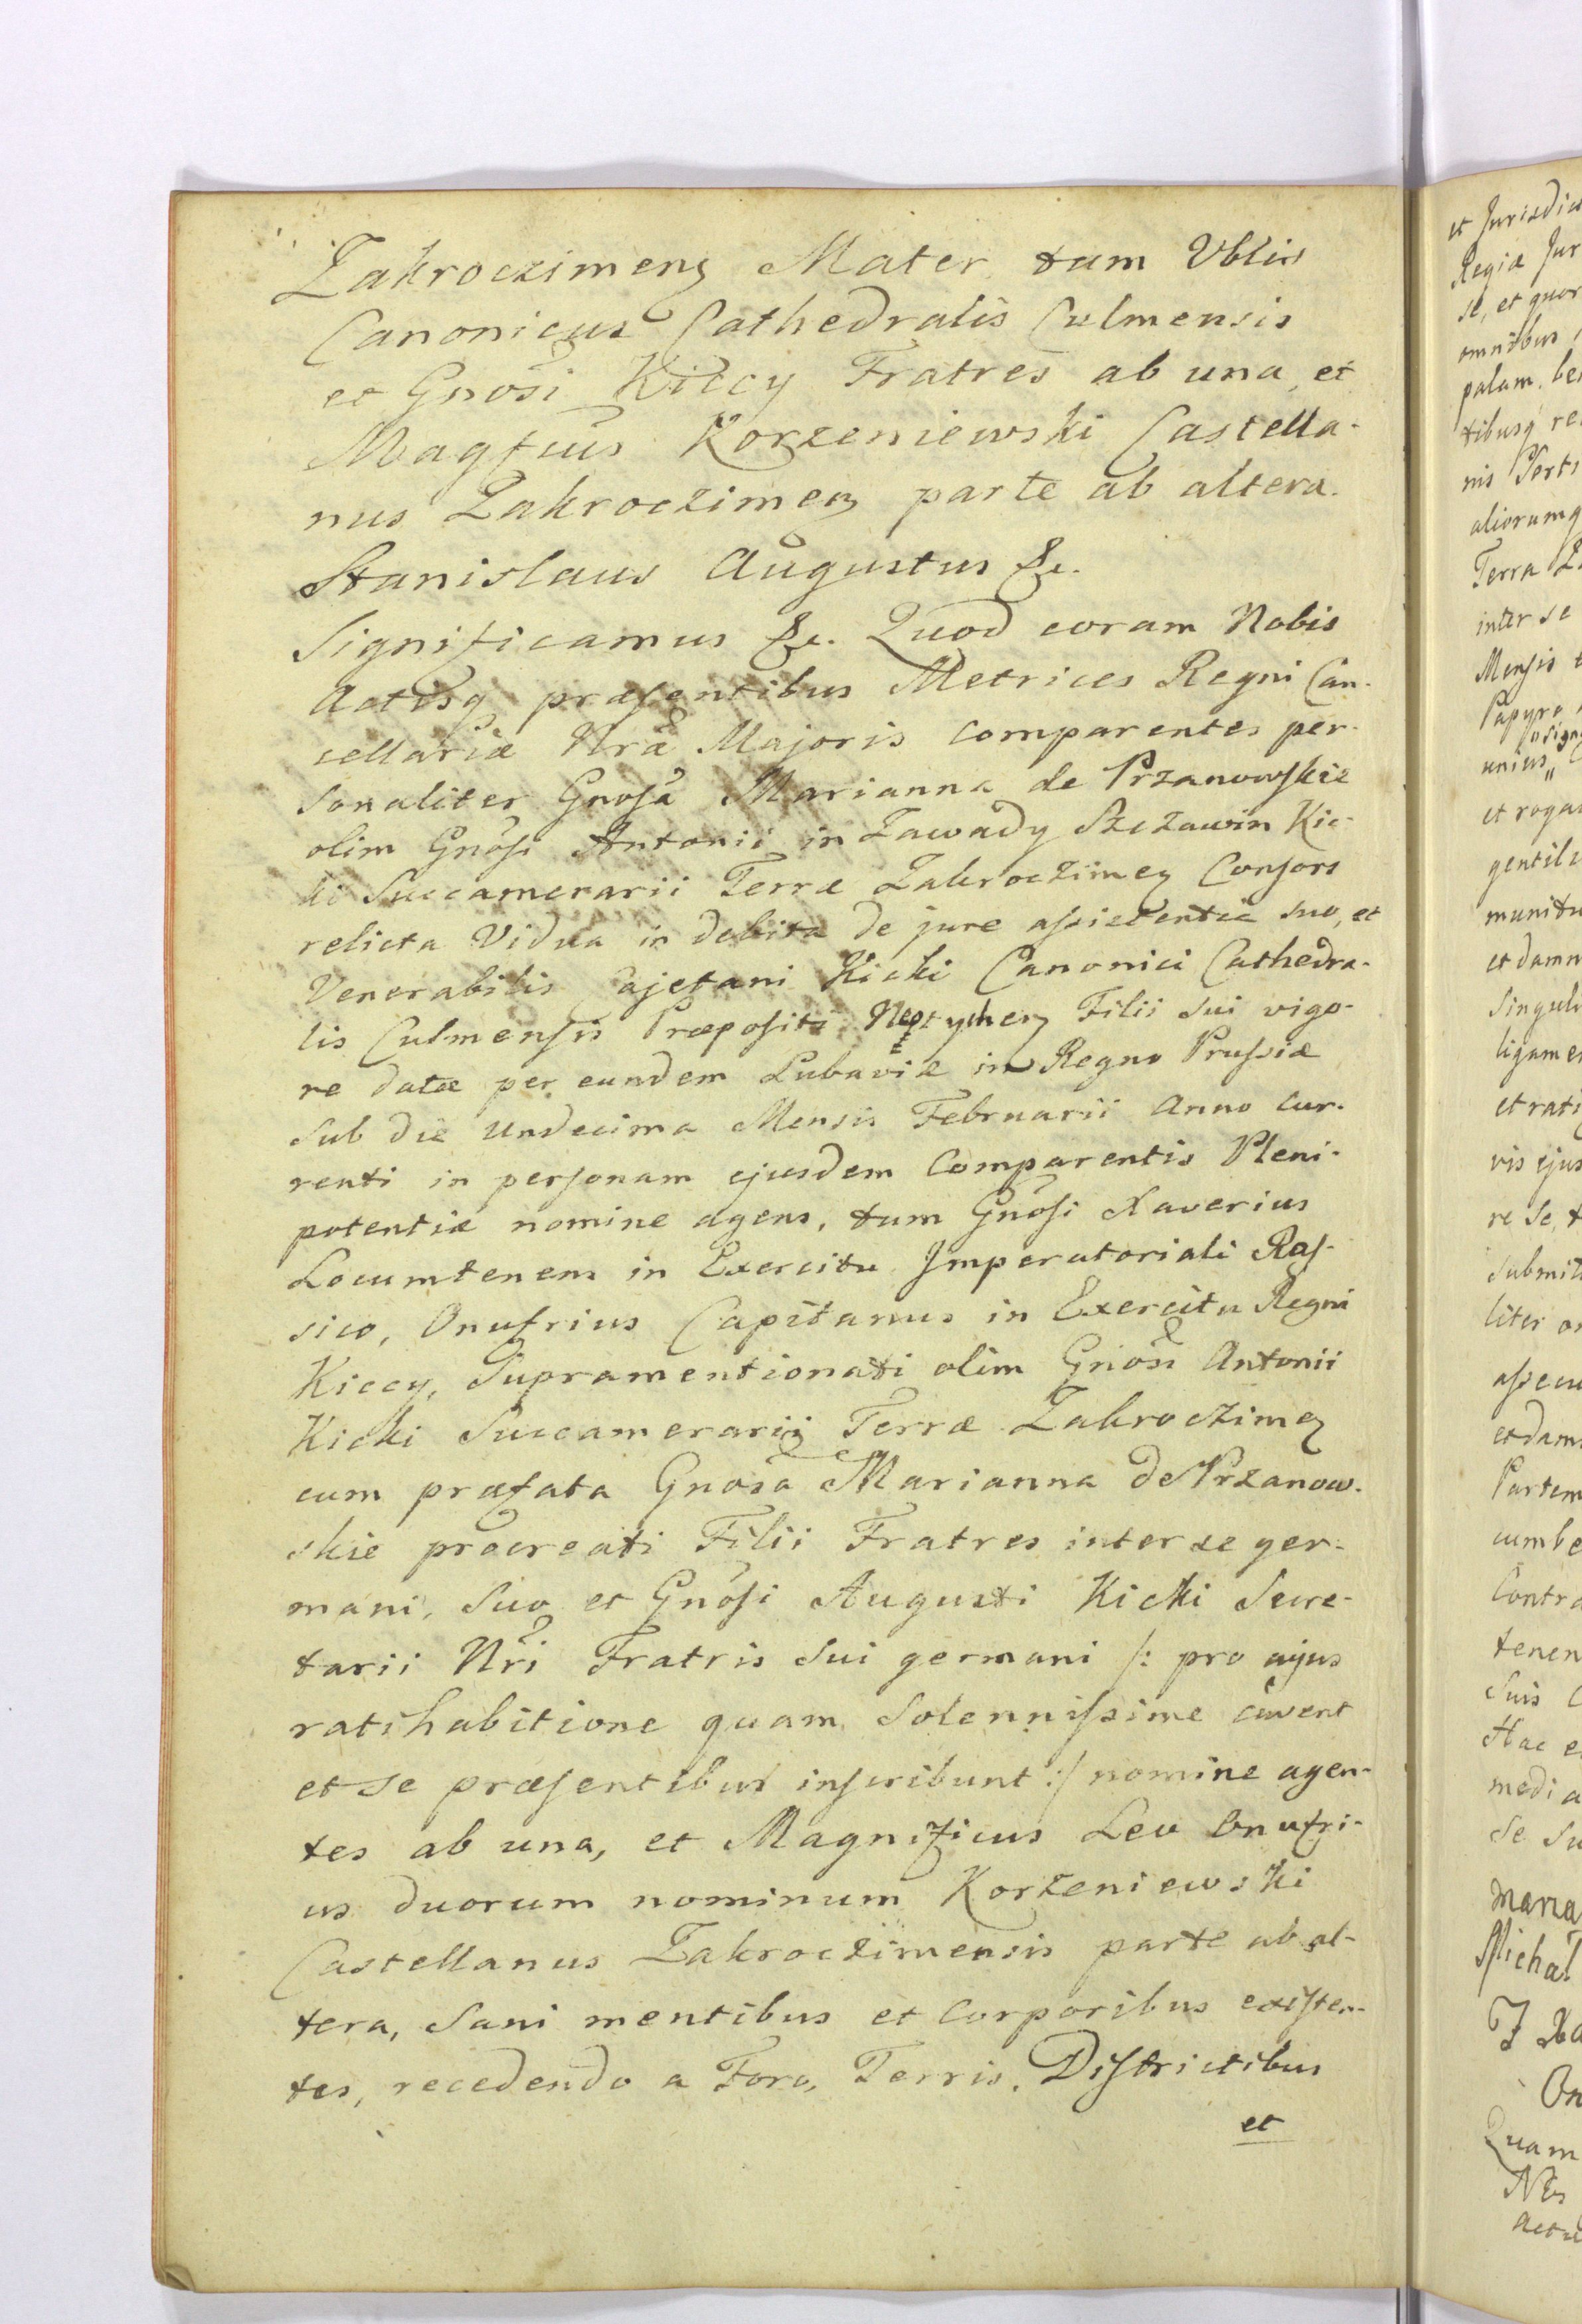 Zakroczimens Mater tum Vblis
Canonicus Cathedralis Culmensis
et Gnosi Kiccy Fratres ab una, et
Magfcus Korzeniewski Castella-
nus Zakroczimen parte ab altera.
Stanislaus Augustus &c.
Significamus &c. Quod coram Nobis
Actisq præsentibus Metrices Regni Can-
cellariæ Nræ Majoris comparentes per-
sonaliter Gnosa Marianna de Przanowskie
olim Gnosi Antonii in Zawady Szczawin Kic-
ki Succamerarii Terræ Zakroczimen Consors
relicta Vidua in debita de jure assistentia suo, et
Venerabilis Cajetani Kicki Canonici Cathedra-
lis Culmensis Præpositi Filii sui vigo-
re datæ per eundem Lubaviæ in Regno Prussiæ
sub die Undecima Mensis Februarii Anno cur-
renti in personam ejusdem Comparentis Pleni-
potentiæ nomine agens, tum Gnosi Xaverius
Locumtenens in Exercitu Imperatoriali Ras-
sico, Onufrius Capitanus in Exercitu Regni
Kiccy, Supramentionati olim Gnosi Antonii
Kicki Succamerarii Terræ Zakroczimen
cum præfata Gnosa Marianna de Przanow-
skie procreati Filii Fratres inter se ger-
mani, suo et Gnosi Augusti Kicki Secre-
tarii Nri Fratris sui germani /: pro cujus
ratihabitione quam solennissime cavent
et se præsentibus inscribunt :/ nomine agen-
tes ab una, et Magnificus Leo Onufri-
us duorum nominum Korzeniewski
Castellanus Zakroczimensis parte ab al-
tera, Sani mentibus et Corporibus existen-
tes, recedendo a Foro, Terris, Districtibus
et
et Jurisdic
Regiæ Jur
se, et quor
omnibus
palam, be
tibusq re
aliorumq
Terra Z
inter se
Mensis
Papyro
unius
et roga
gentil
munitu
et damn
Singul
ligame
et rati
vis ejus
re se, t
submit
liter o
assecu
et damn
Partem
cumbe
Contra
tenen
suis C
Hac e
media
se su
Maria
Michał
Quam